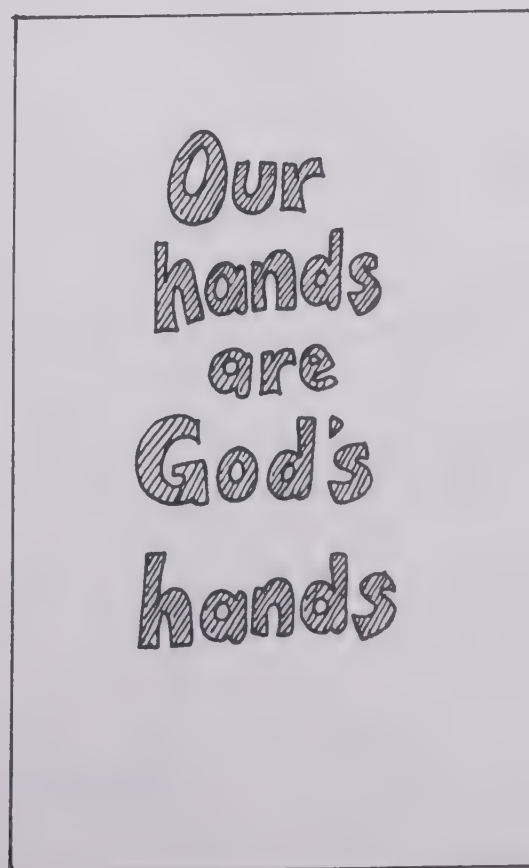 Our
hands
are
God's
hands